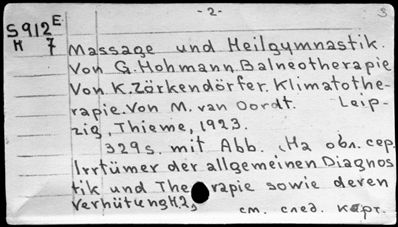 -2-
S912E.
H 7
Massage und Heilgymnastik.
Von G. Hohmann, Balneotherapie
Von K. Zörkendörfer. Klimatothe-
rapie. Von M. van Oordt. Leip-
zig, Thieme, 1923.
329 s. mit Abb. (На обл. сер.
Irrtümer der allgemeinen Diagnos
tik und Therapie sowie deren
Verhütung H2)
см. след. карт.